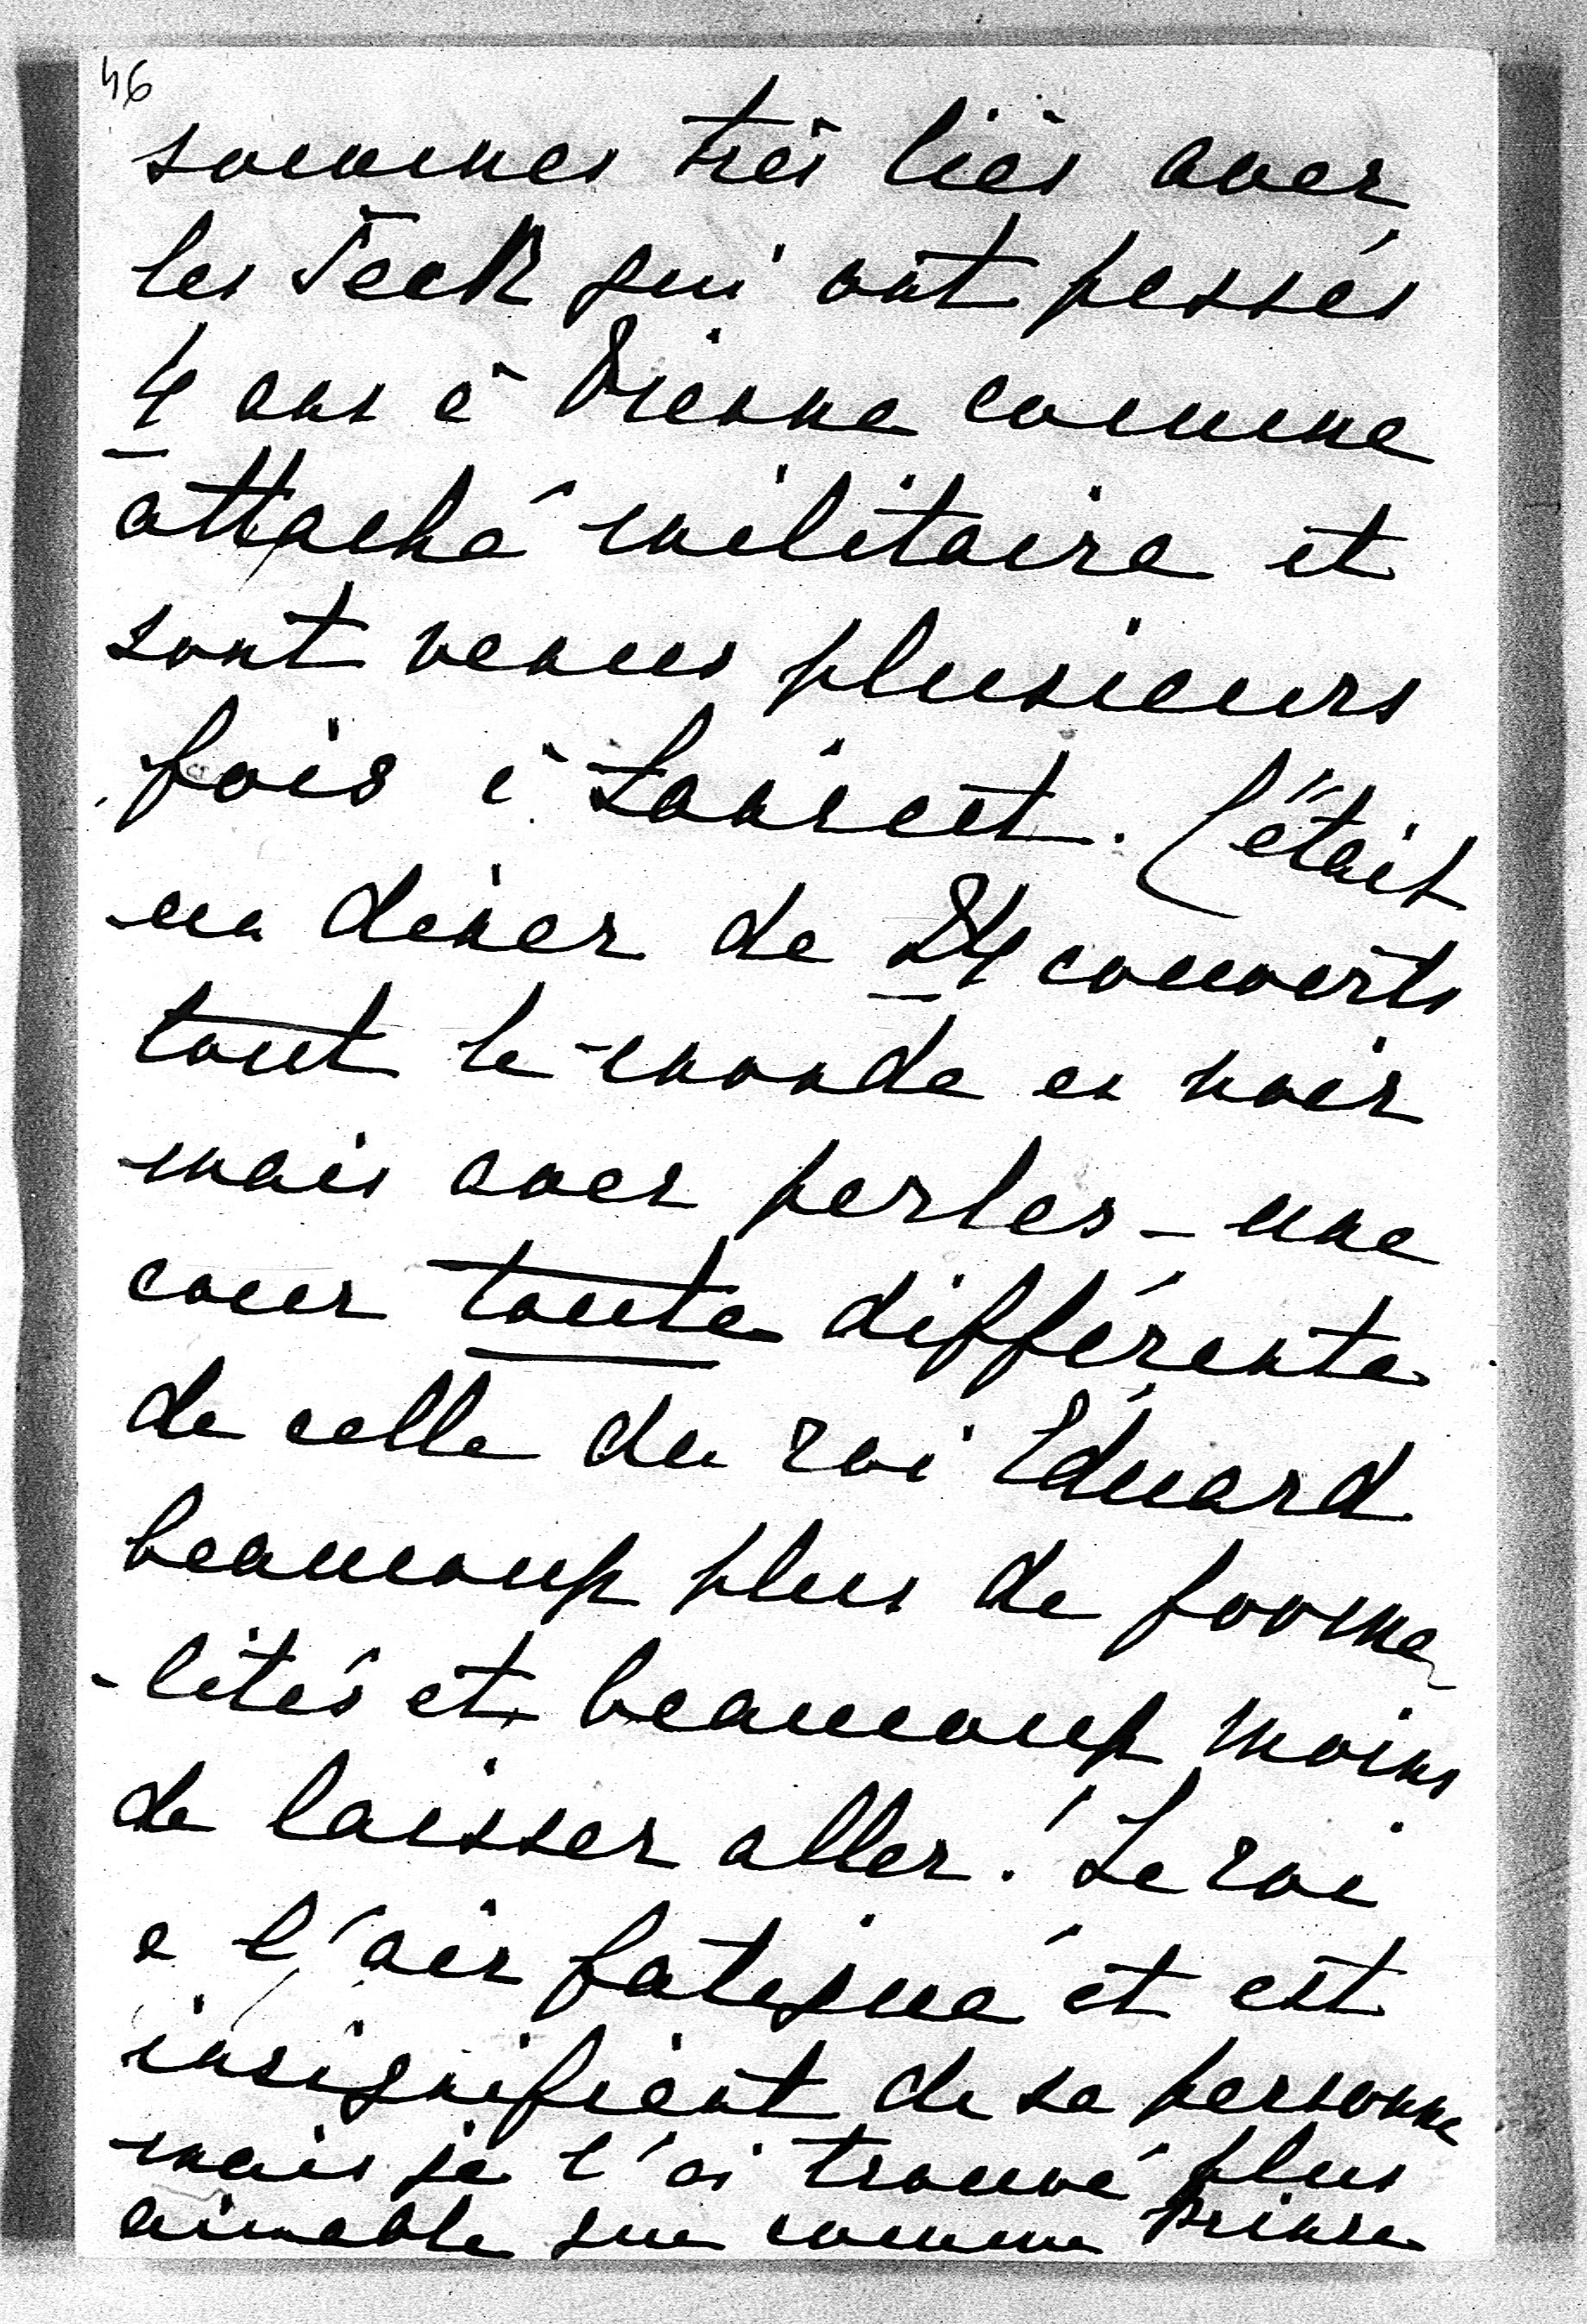 46
sommes très liés avec
les Teck qui ont passés
4 ans à Vienne comme
attaché militaire et
sont venus plusieurs
fois à Lancut. C'était
un diner de 24 couverts
tout le monde en noir
mais avec perles - une
cour toute différente
de celle du roi Eduard
beaucoup plus de forma
-lités et beaucoup moins
de laisser aller! Le roi
a l'air fatigué et est
insignifiant de sa personne
mais je l'ai trouvé plus
aimable que comme Prince